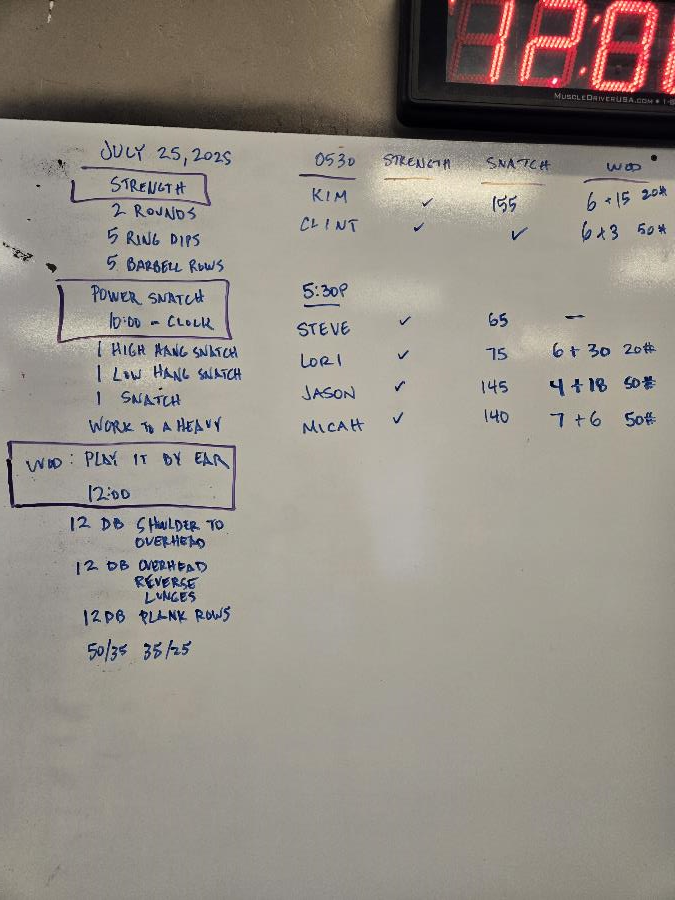 12:0
MUSCLEDRIVERUSA.COM • 1-8
JULY 25, 2025
STRENGTH
2 ROUNDS
5 RING DIPS
5 BARBELL ROWS
POWER SNATCH
10:00 - CLOCK
1 HIGH HANG SNATCH
1 LOW HANG SNATCH
1 SNATCH
WORK TO A HEAVY
WOD: PLAY IT BY EAR
12:00
12 DB SHOULDER TO
OVERHEAD
12 DB OVERHEAD
REVERSE
LUNGES
12 DB PLANK ROWS
50/35 35/25
0530 STRENGTH SNATCH WOD
KIM ✓ 155 6 + 15 20#
CLINT ✓ ✓ 6+3 50#
5:30P
STEVE ✓ 65 —
LORI ✓ 75 6 + 30 20#
JASON ✓ 145 4 + 18 50#
MICAH ✓ 140 7 + 6 50#